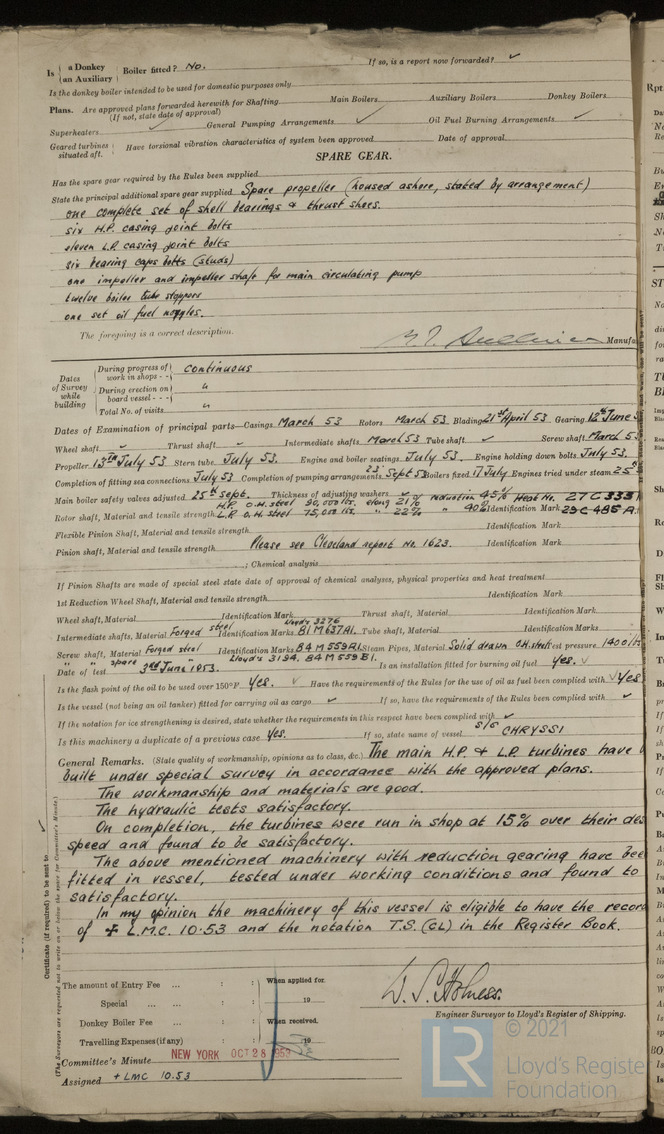 Is { a Donkey / an Auxiliary } Boiler fitted? No. If so, is a report now forwarded? ✓
Is the donkey boiler intended to be used for domestic purposes only
Plans. Are approved plans forwarded herewith for Shafting Main Boilers Auxiliary Boilers Donkey Boilers
(If not, state date of approval)
Superheaters ✓ General Pumping Arrangements ✓ Oil Fuel Burning Arrangements ✓
Geared turbines situated aft. } Have torsional vibration characteristics of system been approved Date of approval
SPARE GEAR.
Has the spare gear required by the Rules been supplied
State the principal additional spare gear supplied Spare propeller (housed ashore, stated by arrangement)
one complete set of shell bearings & thrust shoes.
six H.P. casing joint bolts
eleven L.P. casing joint bolts
six bearing caps bolts (studs)
one impeller and impeller shaft for main circulating pump
twelve boiler tube stoppers
one set oil fuel nozzles.
The foregoing is a correct description.
Manufa
Dates of Survey while building
During progress of work in shops - - continuous
During erection on board vessel - - - "
Total No. of visits "
Dates of Examination of principal parts—Casings March 53 Rotors March 53. Blading 21st April 53. Gearing 12th June 5
Wheel shaft ✓ Thrust shaft ✓ Intermediate shafts March 53 Tube shaft ✓ Screw shaft March 53
Propeller 13th July 53 Stern tube July 53. Engine and boiler seatings July 53. Engine holding down bolts July 53.
Completion of fitting sea connections July 53 Completion of pumping arrangements 23 Sept 53 Boilers fixed 17 July Engines tried under steam 25
Main boiler safety valves adjusted 25th Sept. Thickness of adjusting washers ✓
H.P. O.H. steel 90,000 lbs. elong 21% reduction 45% Heat No. 27C333
Rotor shaft, Material and tensile strength L.P. O.H. steel 75,000 lbs. " 22% " 40% Identification Mark 29C485A
Flexible Pinion Shaft, Material and tensile strength Identification Mark
Pinion shaft, Material and tensile strength Please see Cleveland report No. 1623. Identification Mark
; Chemical analysis
If Pinion Shafts are made of special steel state date of approval of chemical analyses, physical properties and heat treatment
1st Reduction Wheel Shaft, Material and tensile strength Identification Mark
Wheel shaft, Material Identification Mark Thrust shaft, Material Identification Mark
Lloyd's 3276
Intermediate shafts, Material Forged steel Identification Marks 81M637A1. Tube shaft, Material Identification Marks
Screw shaft, Material Forged steel Identification Marks 84M559A1 Steam Pipes, Material Solid drawn O.H. steel Test pressure 1400
" " spare Lloyd's 3194, 84M559B1.
Date of test 3rd June 1953. Is an installation fitted for burning oil fuel Yes. ✓
Is the flash point of the oil to be used over 150°F. Yes. ✓ Have the requirements of the Rules for the use of oil as fuel been complied with ✓ Yes
Is the vessel (not being an oil tanker) fitted for carrying oil as cargo ✓ If so, have the requirements of the Rules been complied with ✓
If the notation for ice strengthening is desired, state whether the requirements in this respect have been complied with ✓
Is this machinery a duplicate of a previous case Yes. If so, state name of vessel s/s CHRYSSI
General Remarks. (State quality of workmanship, opinions as to class, &c.) The main H.P. & L.P. turbines have
built under special survey in accordance with the approved plans.
The workmanship and materials are good.
The hydraulic tests satisfactory.
On completion, the turbines were run in shop at 15% over their des
speed and found to be satisfactory.
The above mentioned machinery with reduction gearing have bee
fitted in vessel, tested under working conditions and found to
satisfactory.
In my opinion the machinery of this vessel is eligible to have the record
of ✠ L.M.C. 10.53 and the notation T.S. (CL) in the Register Book.
Certificate (if required) to be sent to
(The Surveyors are requested not to write on or below the space for Committee's Minute.)
The amount of Entry Fee ... : : When applied for,
Special ... : : 19
Donkey Boiler Fee ... : : When received,
Travelling Expenses (if any) : : 19
Engineer Surveyor to Lloyd's Register of Shipping.
Committee's Minute NEW YORK OCT 28 1953
Assigned + LMC 10.53
LR
© 2021
Lloyd's Registe
Foundation